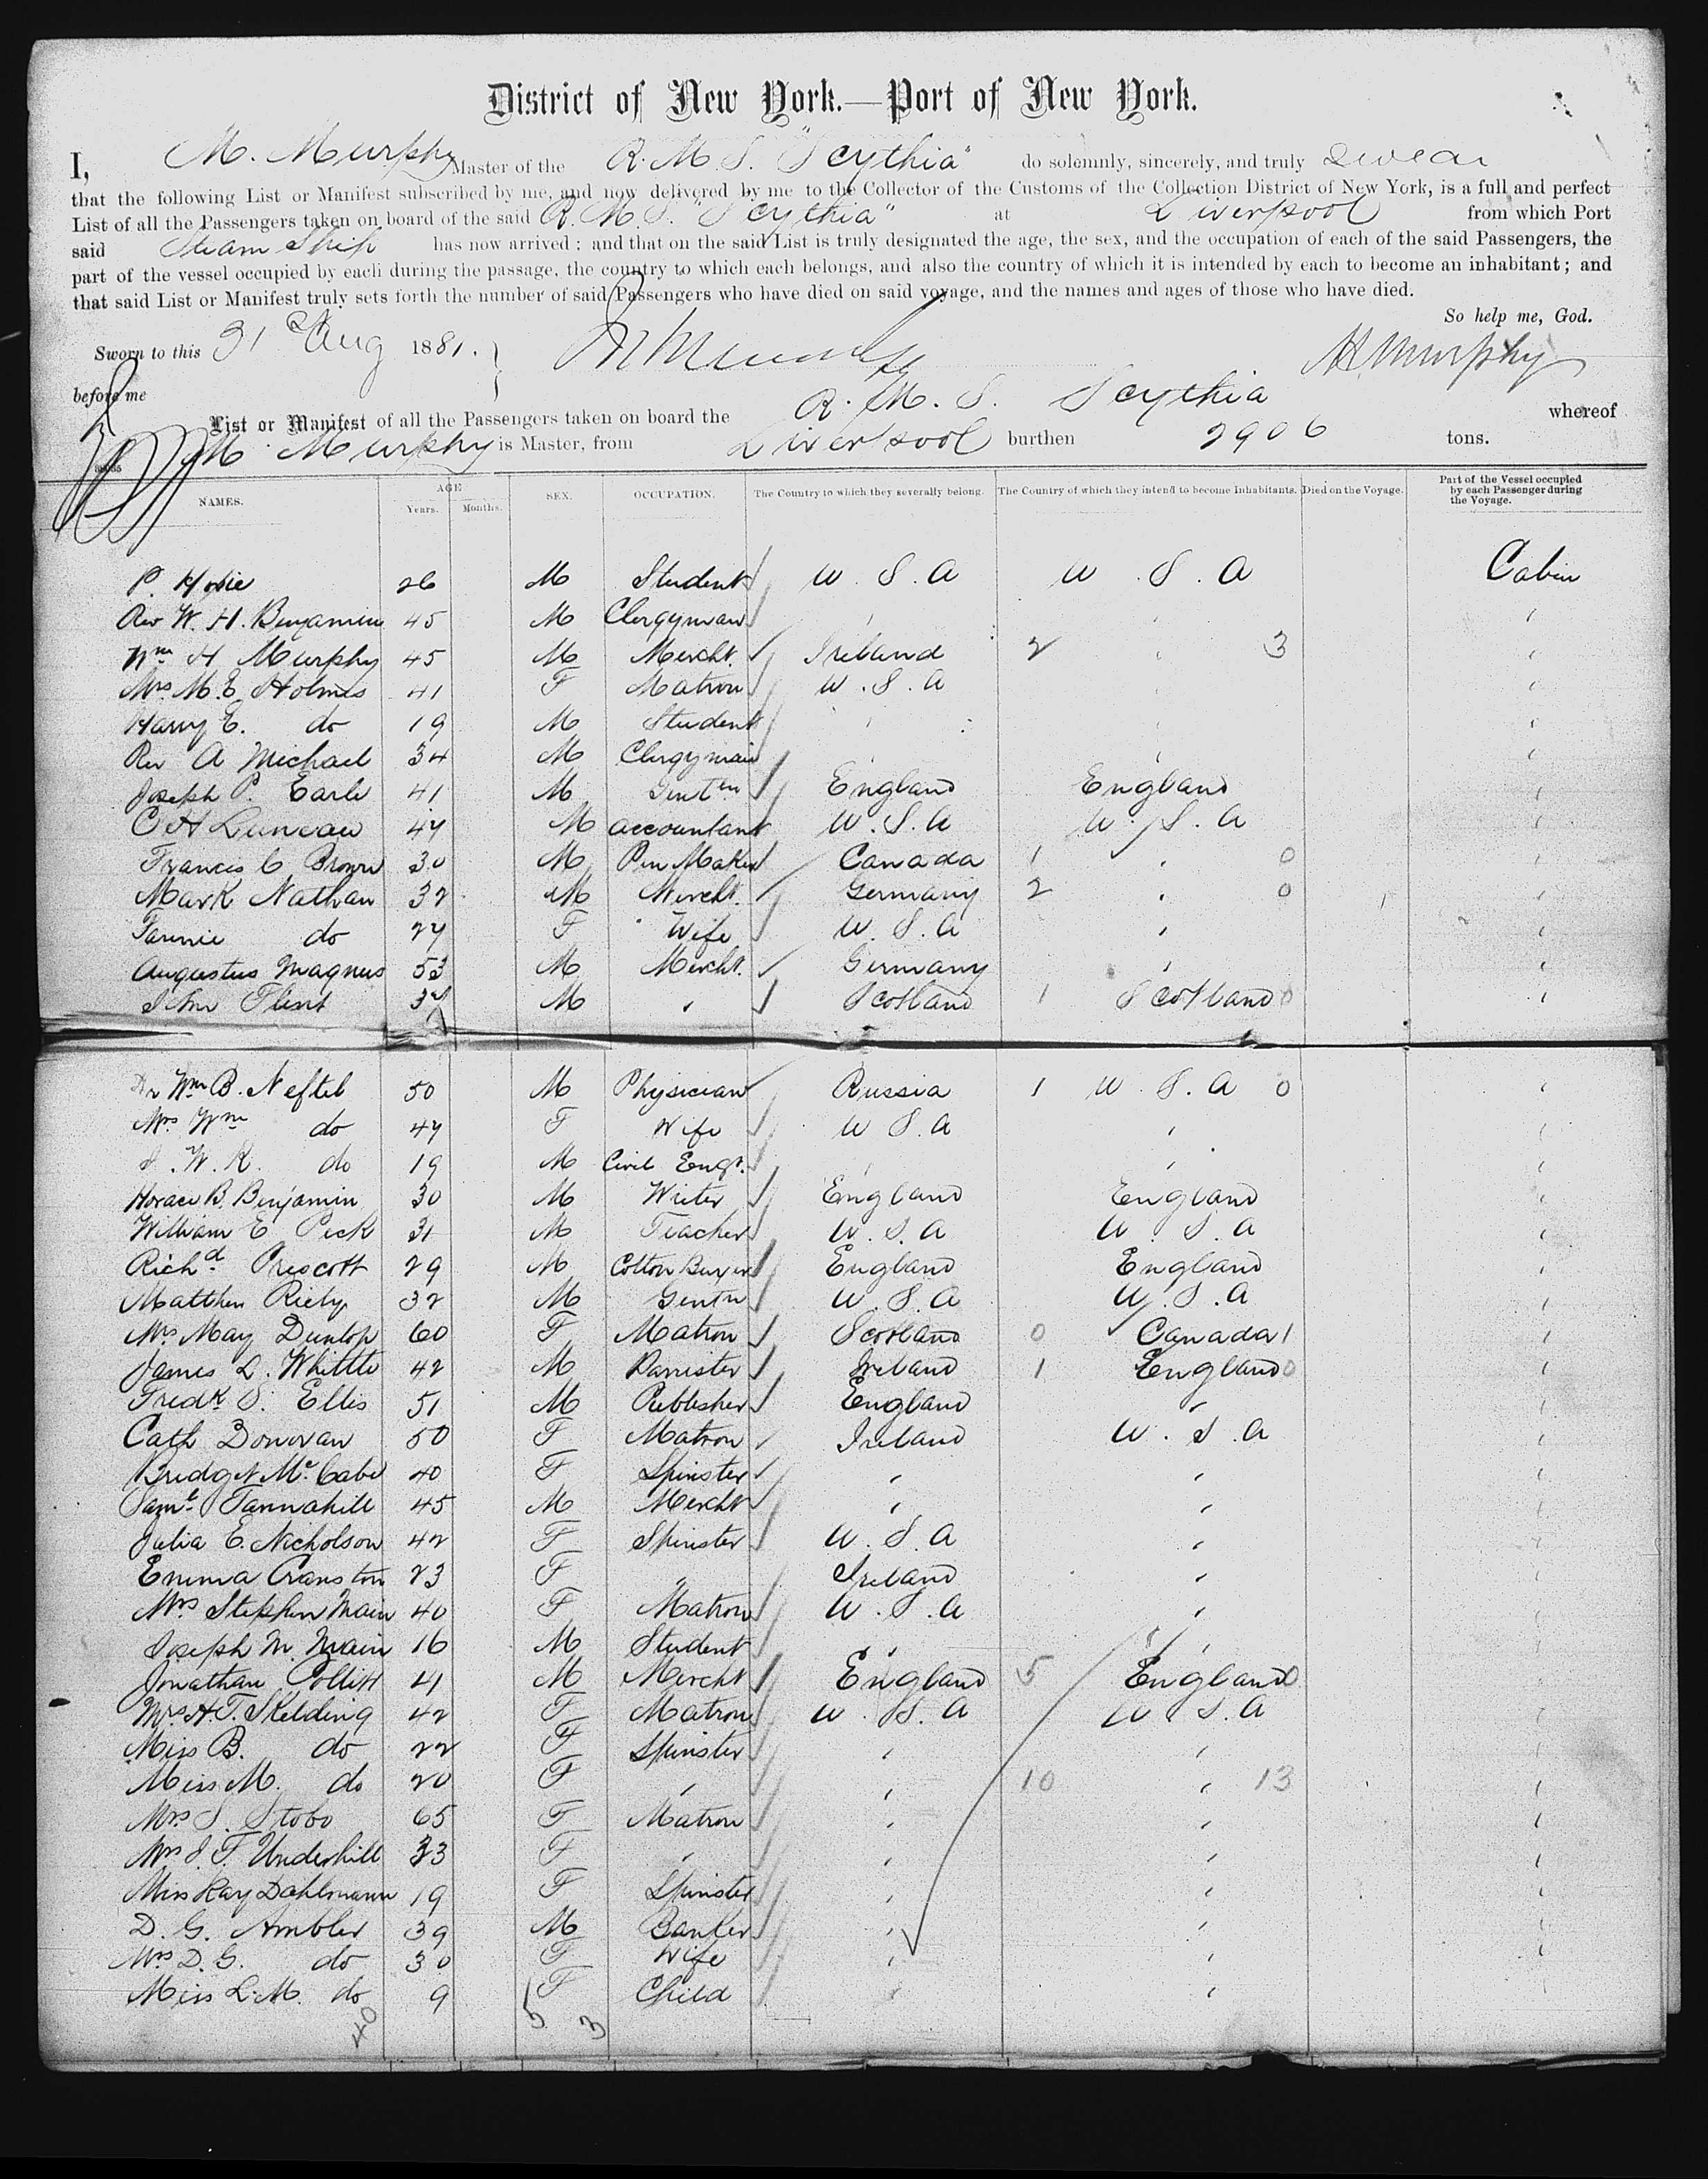 District of New York.—Port of New York.
I, M. Murphy Master of the R.M.S. "Scythia" do solemnly, sincerely, and truly swear
that the following List or Manifest subscribed by me, and now delivered by me to the Collector of the Customs of the Collection District of New York, is a full and perfect
List of all the Passengers taken on board of the said R.M.S. "Scythia" at Liverpool from which Port
said Steam Ship has now arrived: and that on the said List is truly designated the age, the sex, and the occupation of each of the said Passengers, the
part of the vessel occupied by each during the passage, the country to which each belongs, and also the country of which it is intended by each to become an inhabitant; and
that said List or Manifest truly sets forth the number of said Passengers who have died on said voyage, and the names and ages of those who have died.
So help me, God.
Sworn to this 31 Aug 1881. M Murphy
before me
List or Manifest of all the Passengers taken on board the R.M.S. Scythia whereof
M. Murphy is Master, from Liverpool burthen 2906 tons.
NAMES. AGE Years. Months. SEX. OCCUPATION. The Country to which they severally belong. The Country of which they intend to become Inhabitants. Died on the Voyage. Part of the Vessel occupied by each Passenger during the Voyage.
P. 26 M Student U.S.A U.S.A Cabin
Rev W. H. Benjamin 45 M Clergyman " " "
Wm H Murphy 45 M Mercht. Ireland 2 " 3 "
Mrs M.E Holmes 41 F Matron U.S.A " "
Harry E. do 19 M Student " " "
Rev A Michael 34 M Clergyman " " "
Joseph P. Earle 41 M Gentln England England "
C A Duncan 47 M accountant U.S.A U.S.A "
Francis C Brown 30 M Pen Maker Canada 1 " 0 "
Mark Nathan 32 M Mercht. Germany 2 " 0 "
Fannie do 27 F Wife U.S.A " "
Augustus Magnus 53 M Mercht. Germany " "
John Flint 37 M " Scotland 1 Scotland 0 "
Dr Wm B. Neftel 50 M Physician Russia 1 U.S.A 0 "
Mrs Wm do 47 F Wife U.S.A " "
W. K. do 19 M Civil Engr. " " "
Horace B. Benjamin 30 M Writer England England "
William E Peck 31 M Teacher U.S.A U.S.A "
Richd. Prescott 29 M Cotton Buyer England England "
Matthew Riely 32 M Gentn U.S.A U.S.A "
Mrs May Dunlop 60 F Matron Scotland 0 Canada 1 "
James L. Whittle 42 M Barrister Ireland 1 England 0 "
Fredk S. Ellis 51 M Publisher England " "
Cath Donovan 50 F Matron Ireland U.S.A "
Bridget McCabe 40 F Spinster " " "
Saml Tannahill 45 M Mercht " " "
Julia E. Nicholson 42 F Spinster U.S.A " "
Emma Cranston 23 F " Ireland " "
Mrs Stephen Main 40 F Matron U.S.A " "
Joseph M. Main 16 M Student " " "
Jonathan Collitt 41 M Mercht England 5 England 0 "
Mrs H.T. Skelding 42 F Matron U.S.A U.S.A "
Miss B. do 22 F Spinster " " "
Miss M. do 20 F " " 10 " 13 "
Mrs S. Stobo 65 F Matron " " "
Mrs J. T. Underhill 33 F " " " "
Miss Ray Dahlmann 19 F Spinster " " "
D. G. Ambler 39 M Banker " " "
Mrs D. G. do 30 F Wife " " "
Miss L.M. do 9 F Child " " "
40 5 3